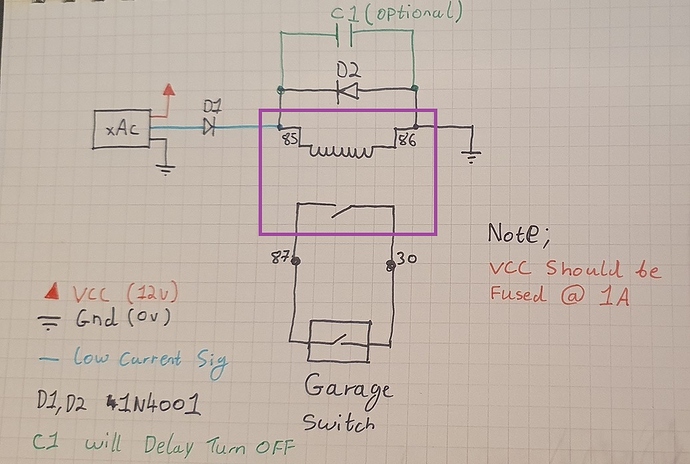 C1 (optional)
D2
D1
xAc
85
86
87
30
Note;
VCC Should be
Fused @ 1A
VCC (12v)
Gnd (0v)
Low Current Sig
D1, D2 1N4001
C1 will Delay Turn OFF
Garage
Switch